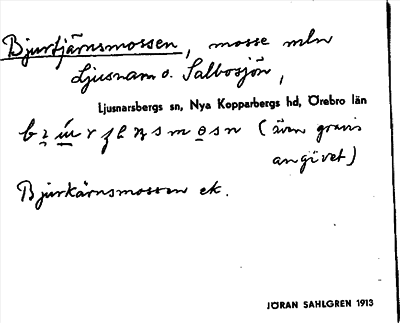 Bjurtjärnsmossen, mosse mln
Ljusnaren o. Salbosjön,
Ljusnarsbergs sn, Nya Kopparbergs hd, Örebro län
(även gravis
angivet)
Bjurkärnsmossen ek.
JÖRAN SAHLGREN 1913